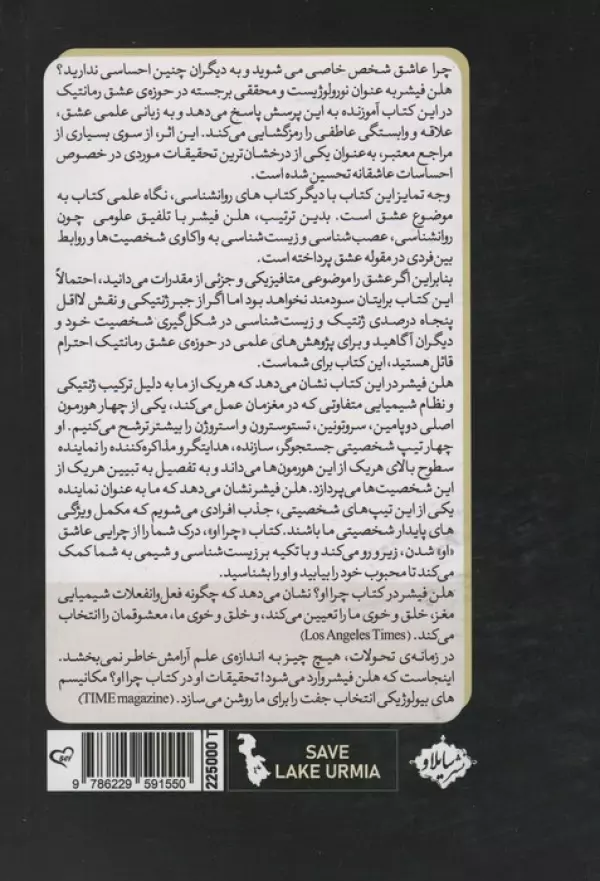 چرا عاشق شخص خاصی می شوید و به دیگران چنین احساسی ندارید؟
هلن فیشر به عنوان نورولوژیست و محققی برجسته در حوزه‌ی عشق رمانتیک
در این کتاب آموزنده به این پرسش پاسخ می‌دهد و به زبانی علمی عشق،
علاقه و وابستگی عاطفی را رمزگشایی می‌کند. این اثر، از سوی بسیاری از
مراجع معتبر، به‌عنوان یکی از درخشان‌ترین تحقیقات موردی در خصوص
احساسات عاشقانه تحسین شده است.
وجه تمایز این کتاب با دیگر کتاب های روانشناسی، نگاه علمی کتاب به
موضوع عشق است. بدین ترتیب، هلن فیشر با تلفیق علومی چون
روانشناسی، عصب‌شناسی و زیست‌شناسی به واکاوی شخصیت‌ها و روابط
بین‌فردی در مقوله عشق پرداخته است.
بنابراین اگر عشق را موضوعی متافیزیکی و جزئی از مقدرات می‌دانید، احتمالاً
این کتاب برایتان سودمند نخواهد بود اما اگر از جبر ژنتیکی و نقش لااقل
پنجاه درصدی ژنتیک و زیست‌شناسی در شکل‌گیری شخصیت خود و
دیگران آگاهید و برای پژوهش‌های علمی در حوزه‌ی عشق رمانتیک احترام
قائل هستید، این کتاب برای شماست.
هلن فیشر در این کتاب نشان می‌دهد که هریک از ما به دلیل ترکیب ژنتیکی
و نظام شیمیایی متفاوتی که در مغزمان عمل می‌کند، یکی از چهار هورمون
اصلی دوپامین، سروتونین، تستوسترون و استروژن را بیشتر ترشح می‌کنیم. او
چهار تیپ شخصیتی جستجوگر، سازنده، هدایتگر و مذاکره‌کننده را نماینده
سطوح بالای هریک از این هورمون‌ها می‌داند و به تفصیل به تبیین هریک از
این شخصیت‌ها می‌پردازد. هلن فیشر نشان می‌دهد که ما به عنوان نماینده
یکی از این تیپ‌های شخصیتی، جذب افرادی می‌شویم که مکمل ویژگی
های پایدار شخصیتی ما باشند. کتاب «چرا او»، درک شما را از چرایی عاشق
«او» شدن، زیر و رو می‌کند و با تکیه بر زیست‌شناسی و شیمی به شما کمک
می‌کند تا محبوب خود را بیابید و او را بشناسید.
هلن فیشر در کتاب چرا او؟ نشان می‌دهد که چگونه فعل‌وانفعلات شیمیایی
مغز، خلق و خوی ما را تعیین می‌کند، و خلق و خوی ما، معشوقمان را انتخاب
می‌کند. (Los Angeles Times)
در زمانه‌ی تحولات، هیچ چیز به اندازه‌ی علم آرامش خاطر نمی‌بخشد.
اینجاست که هلن فیشر وارد می‌شود! تحقیقات او در کتاب چرا او؟ مکانیسم
های بیولوژیکی انتخاب جفت را برای ما روشن می‌سازد. (TIME magazine)
نشر سایلاو
SAVE
LAKE URMIA
225000 T
9 786229 591550